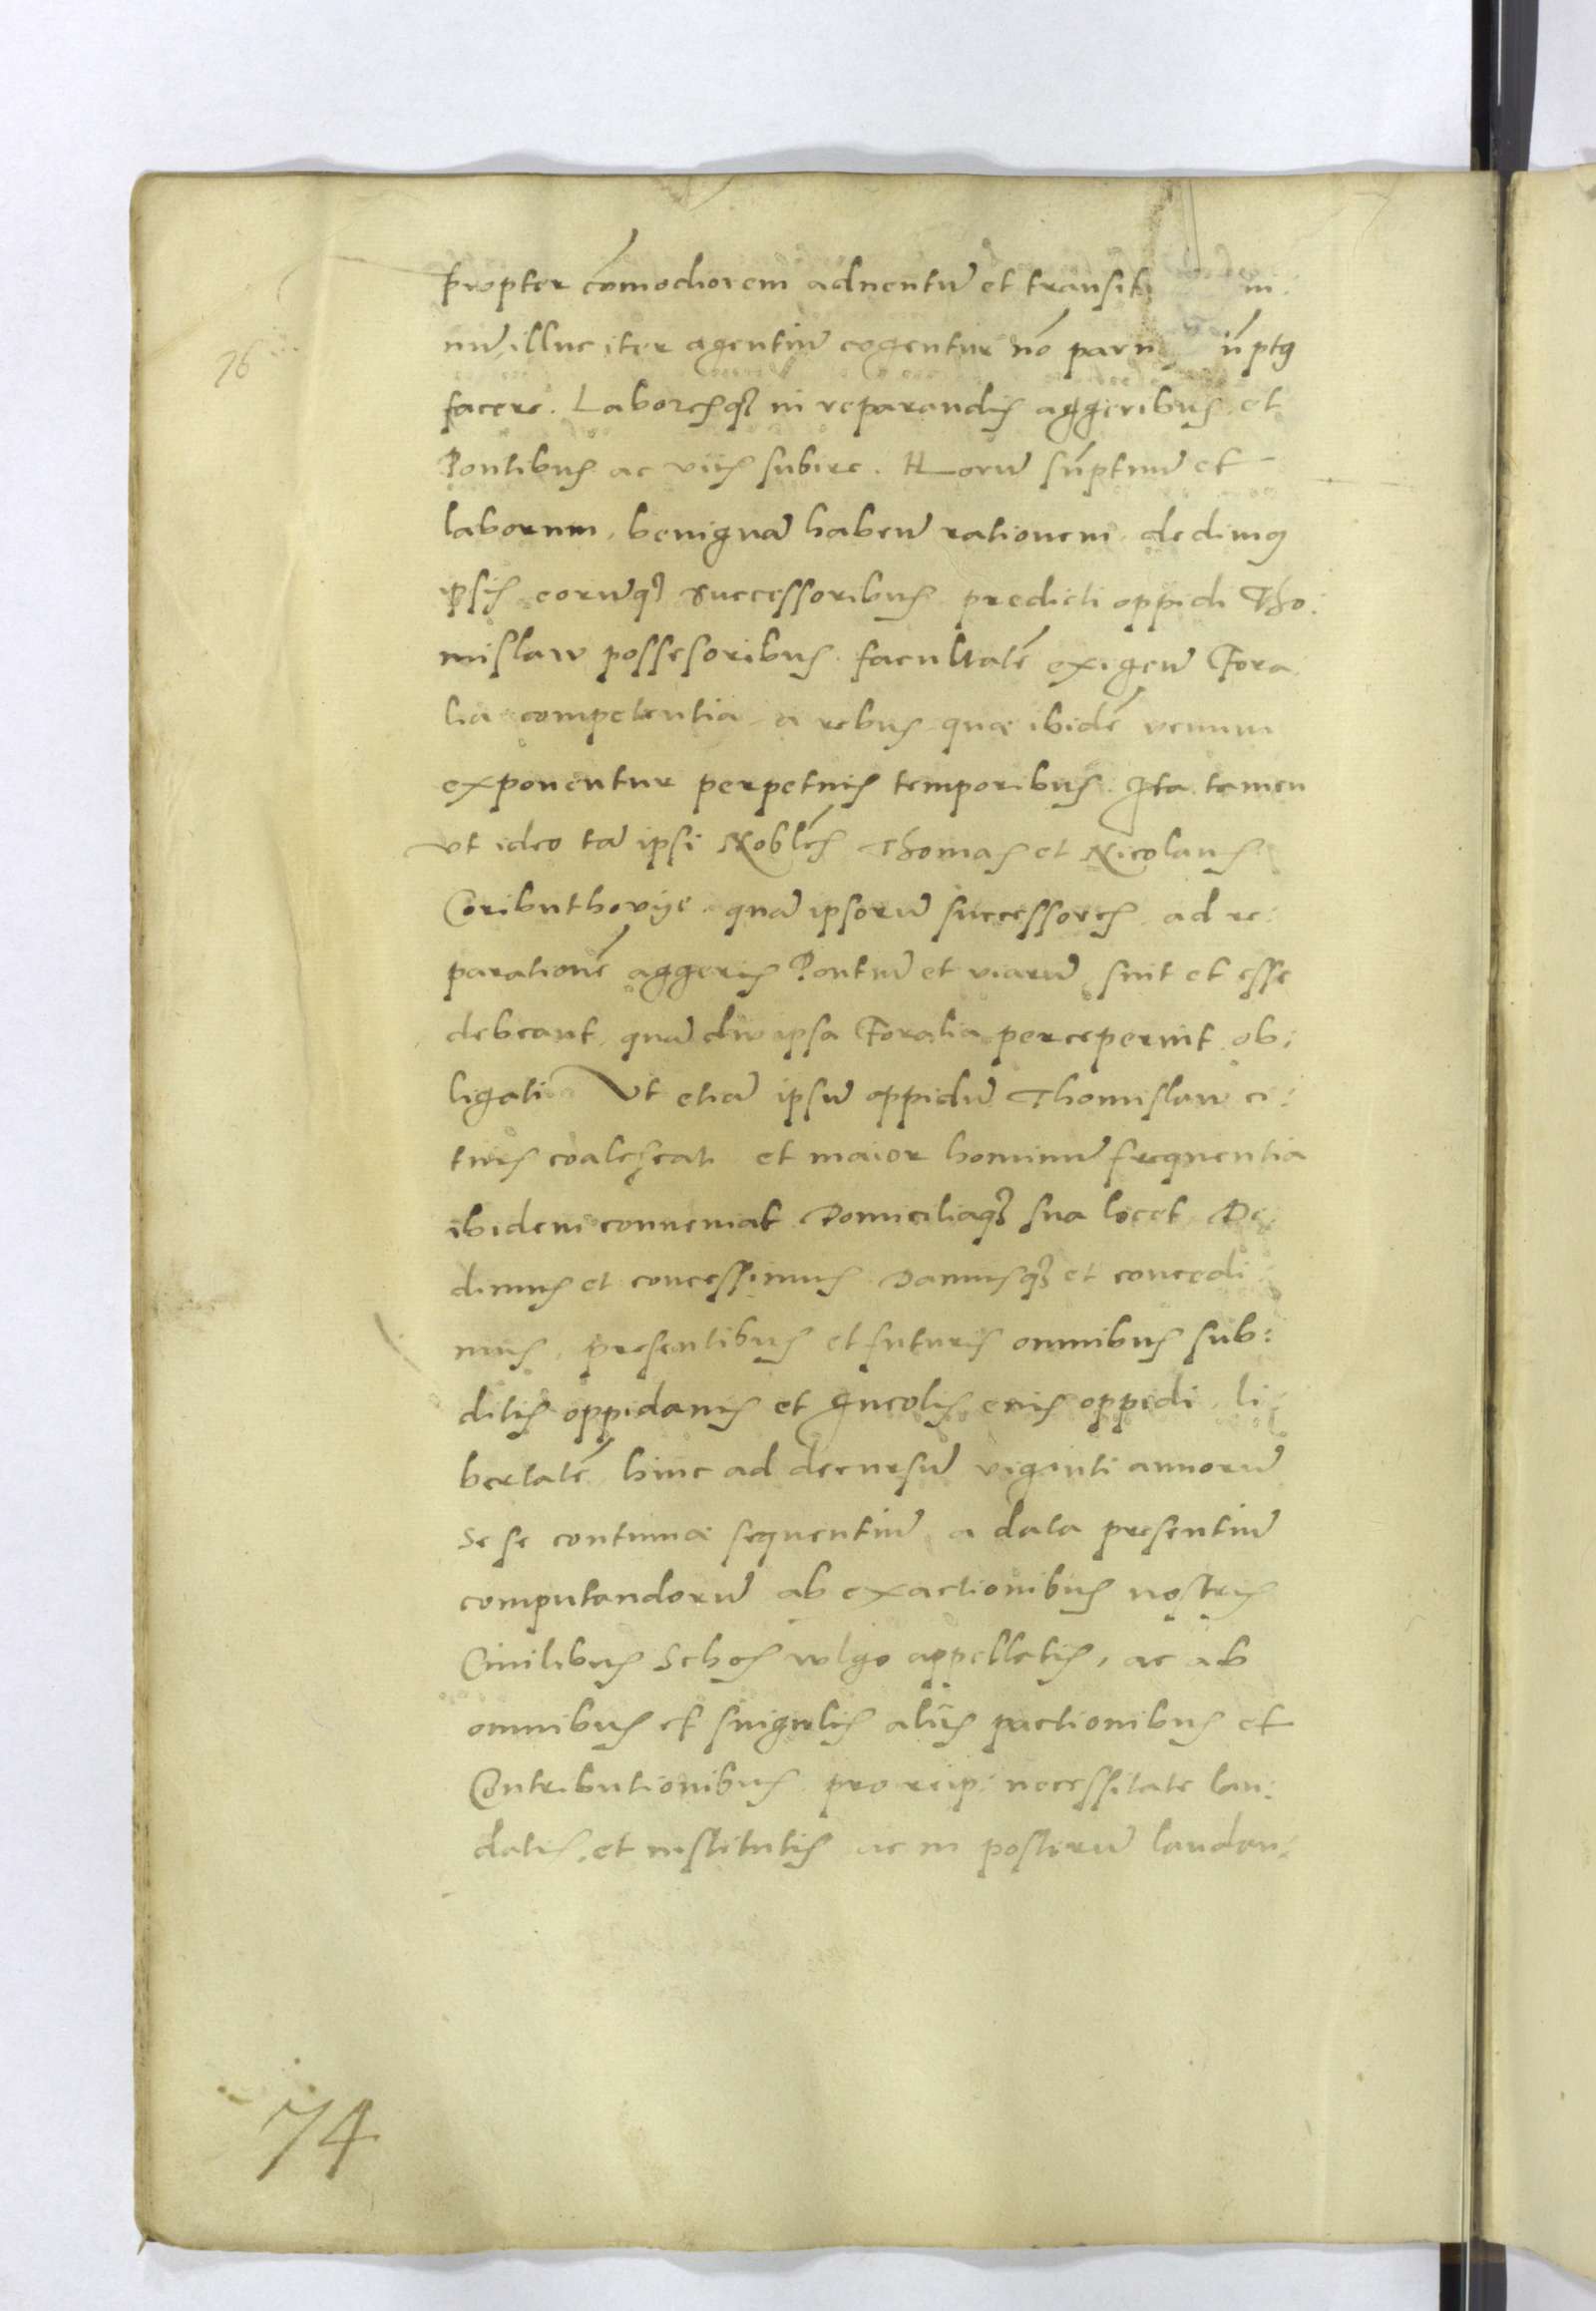 propter cōmodiorem aduentū et transit
76
nū, illuc iter agentiū cogentur nō paru ūpt9
facere. Laboresq3 in reparandis aggeribus et
Pontibus ac viis subire. Horū sūptuū et
laborum, benignā habeñ rationem dedim9
ipsis eorūq3 successoribus predicti oppidi Tho:
mislaw possesoribus facultatē exigeñ Fora
lia competentia a rebus quæ ibidē venum
exponentur perpetuis temporibus. Ita tamen
vt ideo tā ipsi Nobłes Thomas et Nicolaus
Coributhovye quā ipsorū successores ad re:
parationē aggeris Pontiū et viarū sint et esse
debeant quādiu ipsa Foralia perceperint ob:
ligati Vt etiā ipsū oppidū Thomislaw ci:
tius coalescat et maior hominū frequentia
ibidem conueniat Domiciliaq3 sua locet De
dimus et concessimus Damusq3 et concedi
mus, presentibus et futuris omnibus sub:
ditis oppidanis et Incolis eius oppidi li
bertatē hinc ad decursū viginti annorū
se se continuæ sequentiū a data presentiū
computandorū ab exactionibus nostris
Ciuilibus Schos wlgo appellatis, ac ab
omnibus et singulis aliis pactionibus et
Contributionibus pro reip: necessitate lau:
datis, et institutis ac in posterū laudan:
74